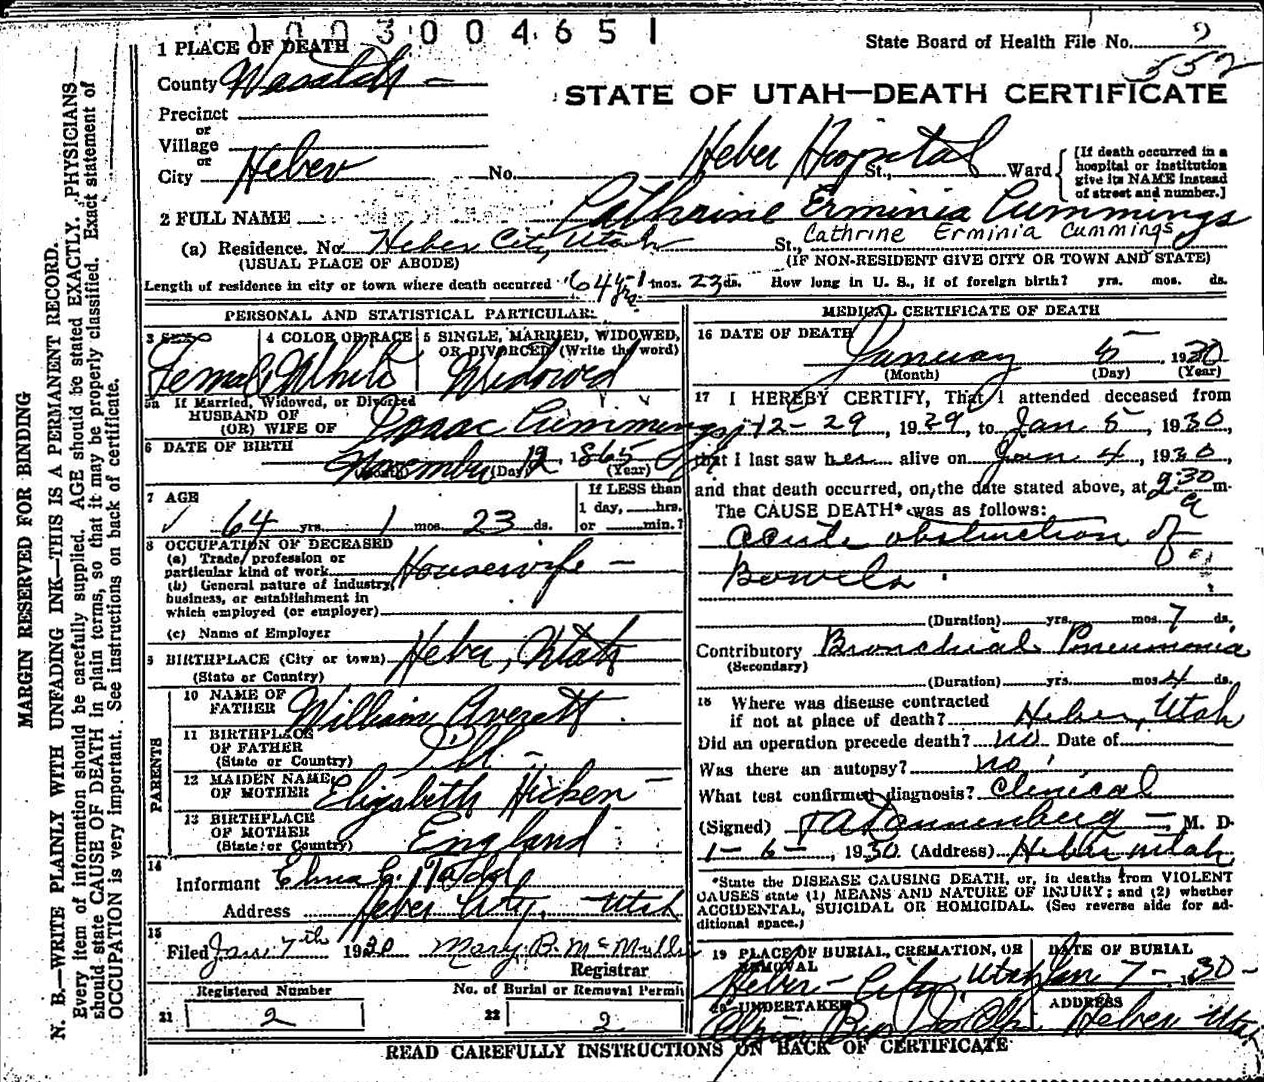 1003004651
1 PLACE OF DEATH
State Board of Health File No. 2
552
County Wasatch
STATE OF UTAH—DEATH CERTIFICATE
Precinct
or
Village
or
City Heber No. Heber Hospital St., Ward
[If death occurred in a
hospital or institution
give its NAME instead
of street and number.]
2 FULL NAME Cathrine Erminia Cummings
Cathrine Erminia Cummings
(a) Residence. No. Heber City, Utah St.,
(USUAL PLACE OF ABODE) (IF NON-RESIDENT GIVE CITY OR TOWN AND STATE)
Length of residence in city or town where death occurred 64 yrs 1 mos. 23 ds. How long in U. S., if of foreign birth? yrs. mos. ds.
PERSONAL AND STATISTICAL PARTICULARS
3 SEX Female
4 COLOR OR RACE White
5 SINGLE, MARRIED, WIDOWED,
OR DIVORCED (Write the word)
Widowed
5a If Married, Widowed, or Divorced
HUSBAND OF
(OR) WIFE OF Isaac Cummings
6 DATE OF BIRTH
November 12, 1865
(Day) (Year)
7 AGE
64 yrs. 1 mos. 23 ds.
If LESS than
1 day, hrs.
or min.?
8 OCCUPATION OF DECEASED
(a) Trade, profession or
particular kind of work Housewife
(b) General nature of industry,
business, or establishment in
which employed (or employer)
(c) Name of Employer
9 BIRTHPLACE (City or town) Heber, Utah
(State or Country)
PARENTS
10 NAME OF
FATHER William Averett
11 BIRTHPLACE
OF FATHER Ill.
(State or Country)
12 MAIDEN NAME
OF MOTHER Elizabeth Hicken
13 BIRTHPLACE
OF MOTHER England
(State or Country)
14
Informant Elma C.
Address Heber City, Utah
15
Filed Jan 7th 1930 Mary B. McMullin
Registrar
Registered Number No. of Burial or Removal Permit
21 2 22 2
MEDICAL CERTIFICATE OF DEATH
16 DATE OF DEATH
January 5 1930
(Month) (Day) (Year)
17 I HEREBY CERTIFY, That I attended deceased from
12-29, 1929, to Jan 5, 1930,
that I last saw her alive on Jan 4, 1930,
and that death occurred, on the date stated above, at 9:30 a m.
The CAUSE DEATH* was as follows:
Acute obstruction of
Bowels
(Duration) yrs. mos. 7 ds.
Contributory Bronchial Pneumonia
(Secondary)
(Duration) yrs. mos. 4 ds.
18 Where was disease contracted
if not at place of death? Heber, Utah
Did an operation precede death? no Date of
Was there an autopsy? no
What test confirmed diagnosis? Clinical
(Signed) T A Dannenberg, M. D.
1-6-, 1930 (Address) Heber Utah
*State the DISEASE CAUSING DEATH, or, in deaths from VIOLENT
CAUSES state (1) MEANS AND NATURE OF INJURY; and (2) whether
ACCIDENTAL, SUICIDAL OR HOMICIDAL. (See reverse side for ad-
ditional space.)
19 PLACE OF BURIAL, CREMATION, OR
REMOVAL
Heber City, Utah
DATE OF BURIAL
Jan 7 - 1930 -
20 UNDERTAKER
ADDRESS
Heber Utah
READ CAREFULLY INSTRUCTIONS ON BACK OF CERTIFICATE
MARGIN RESERVED FOR BINDING
N. B.—WRITE PLAINLY WITH UNFADING INK—THIS IS A PERMANENT RECORD.
Every item of information should be carefully supplied. AGE should be stated EXACTLY. PHYSICIANS
should state CAUSE OF DEATH in plain terms, so that it may be properly classified. Exact statement of
OCCUPATION is very important. See instructions on back of certificate.